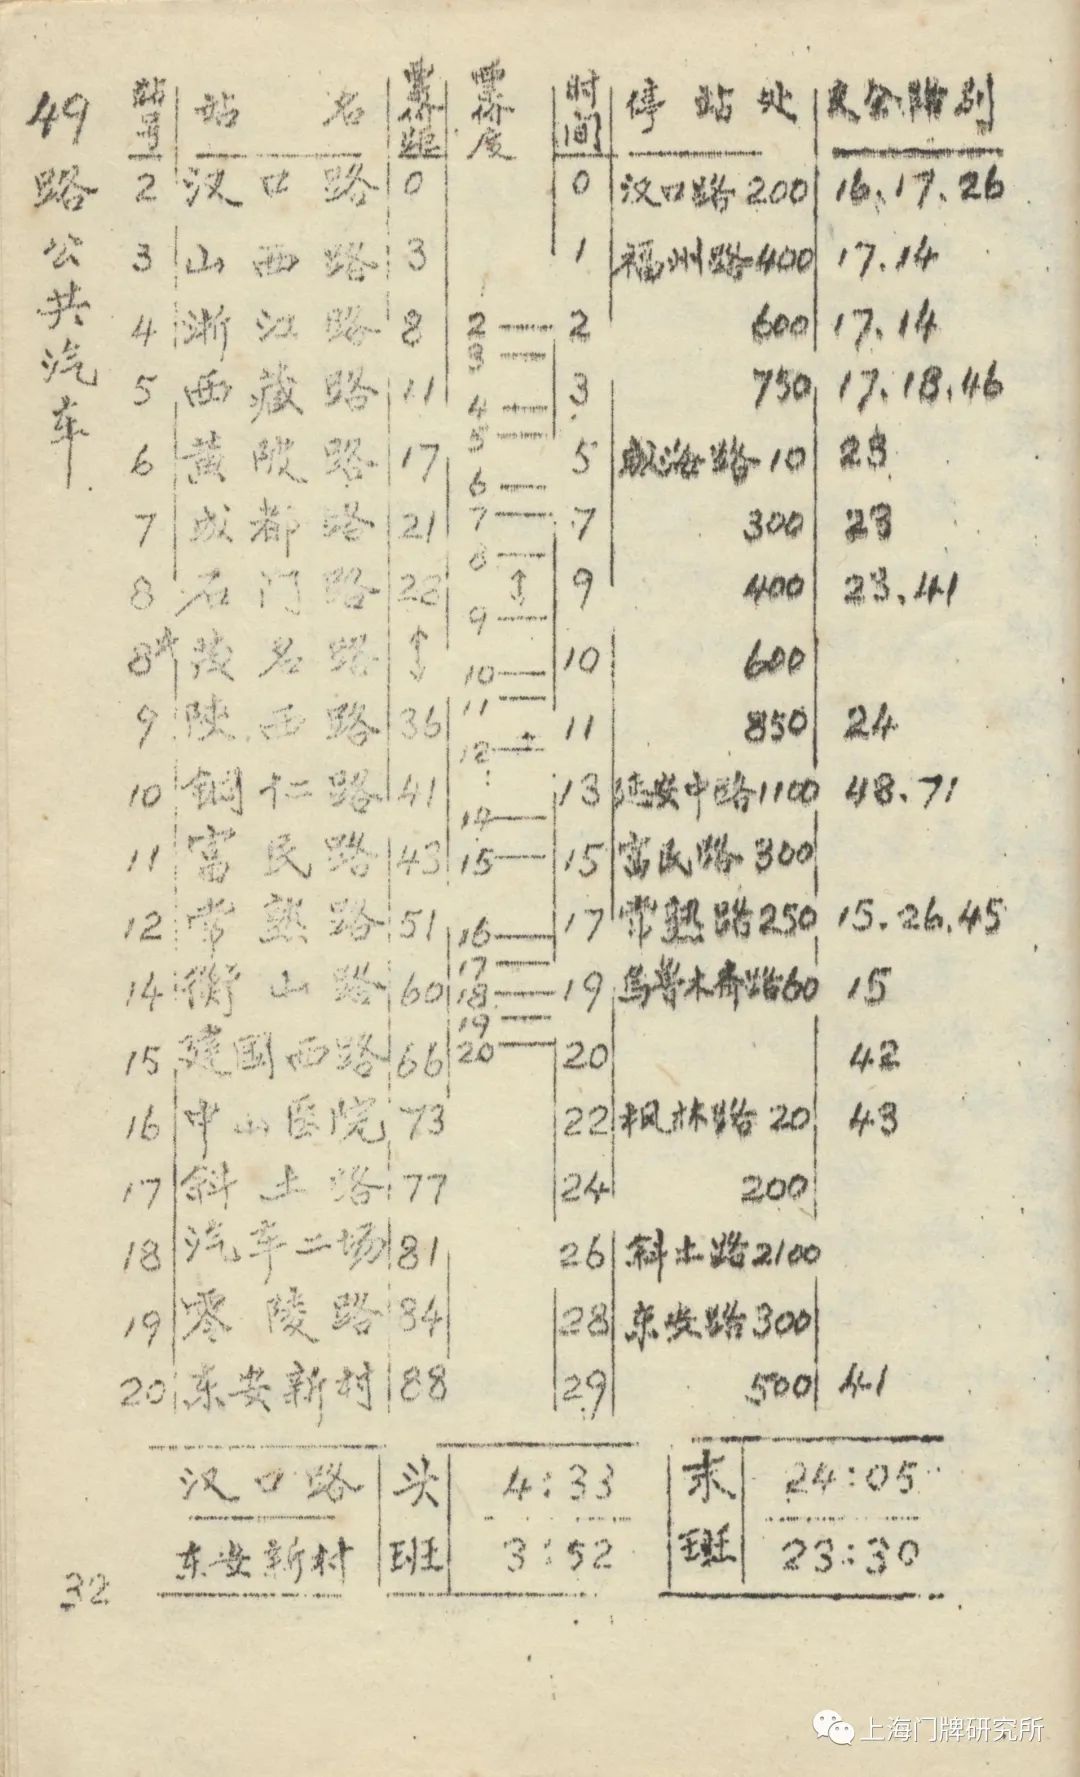 49路公共汽车
站号 站名 票价距 票价度 时间 停站处 交会路别
2 汉口路 0 0 汉口路200 16.17.26
3 山西路 3 1 福州路400 17.14
4 浙江路 8 2 2 600 17.14
3
5 西藏路 11 3 750 17.18.46
4
5
6 黄陂路 17 5 威海路10 23
6
7 成都路 21 7 7 300 23
8
8 石门路 28 ↕ 9 400 23.41
9
8半 茂名路 ↕ 10 10 600
11
9 陕西路 36 11 850 24
12
10 铜仁路 41 13 延安中路1100 48.71
14
11 富民路 43 15 15 富民路300
12 常熟路 51 16 17 常熟路250 15.26.45
17
14 衡山路 60 18 19 乌鲁木齐路60 15
19
15 建国西路 66 20 20 42
16 中山医院 73 22 枫林路20 43
17 斜土路 77 24 200
18 汽车二场 81 26 斜土路2100
19 零陵路 84 28 东安路300
20 东安新村 88 29 500 41
汉口路 头班 4:33 末班 24:05
东安新村 3:52 23:30
32
上海门牌研究所